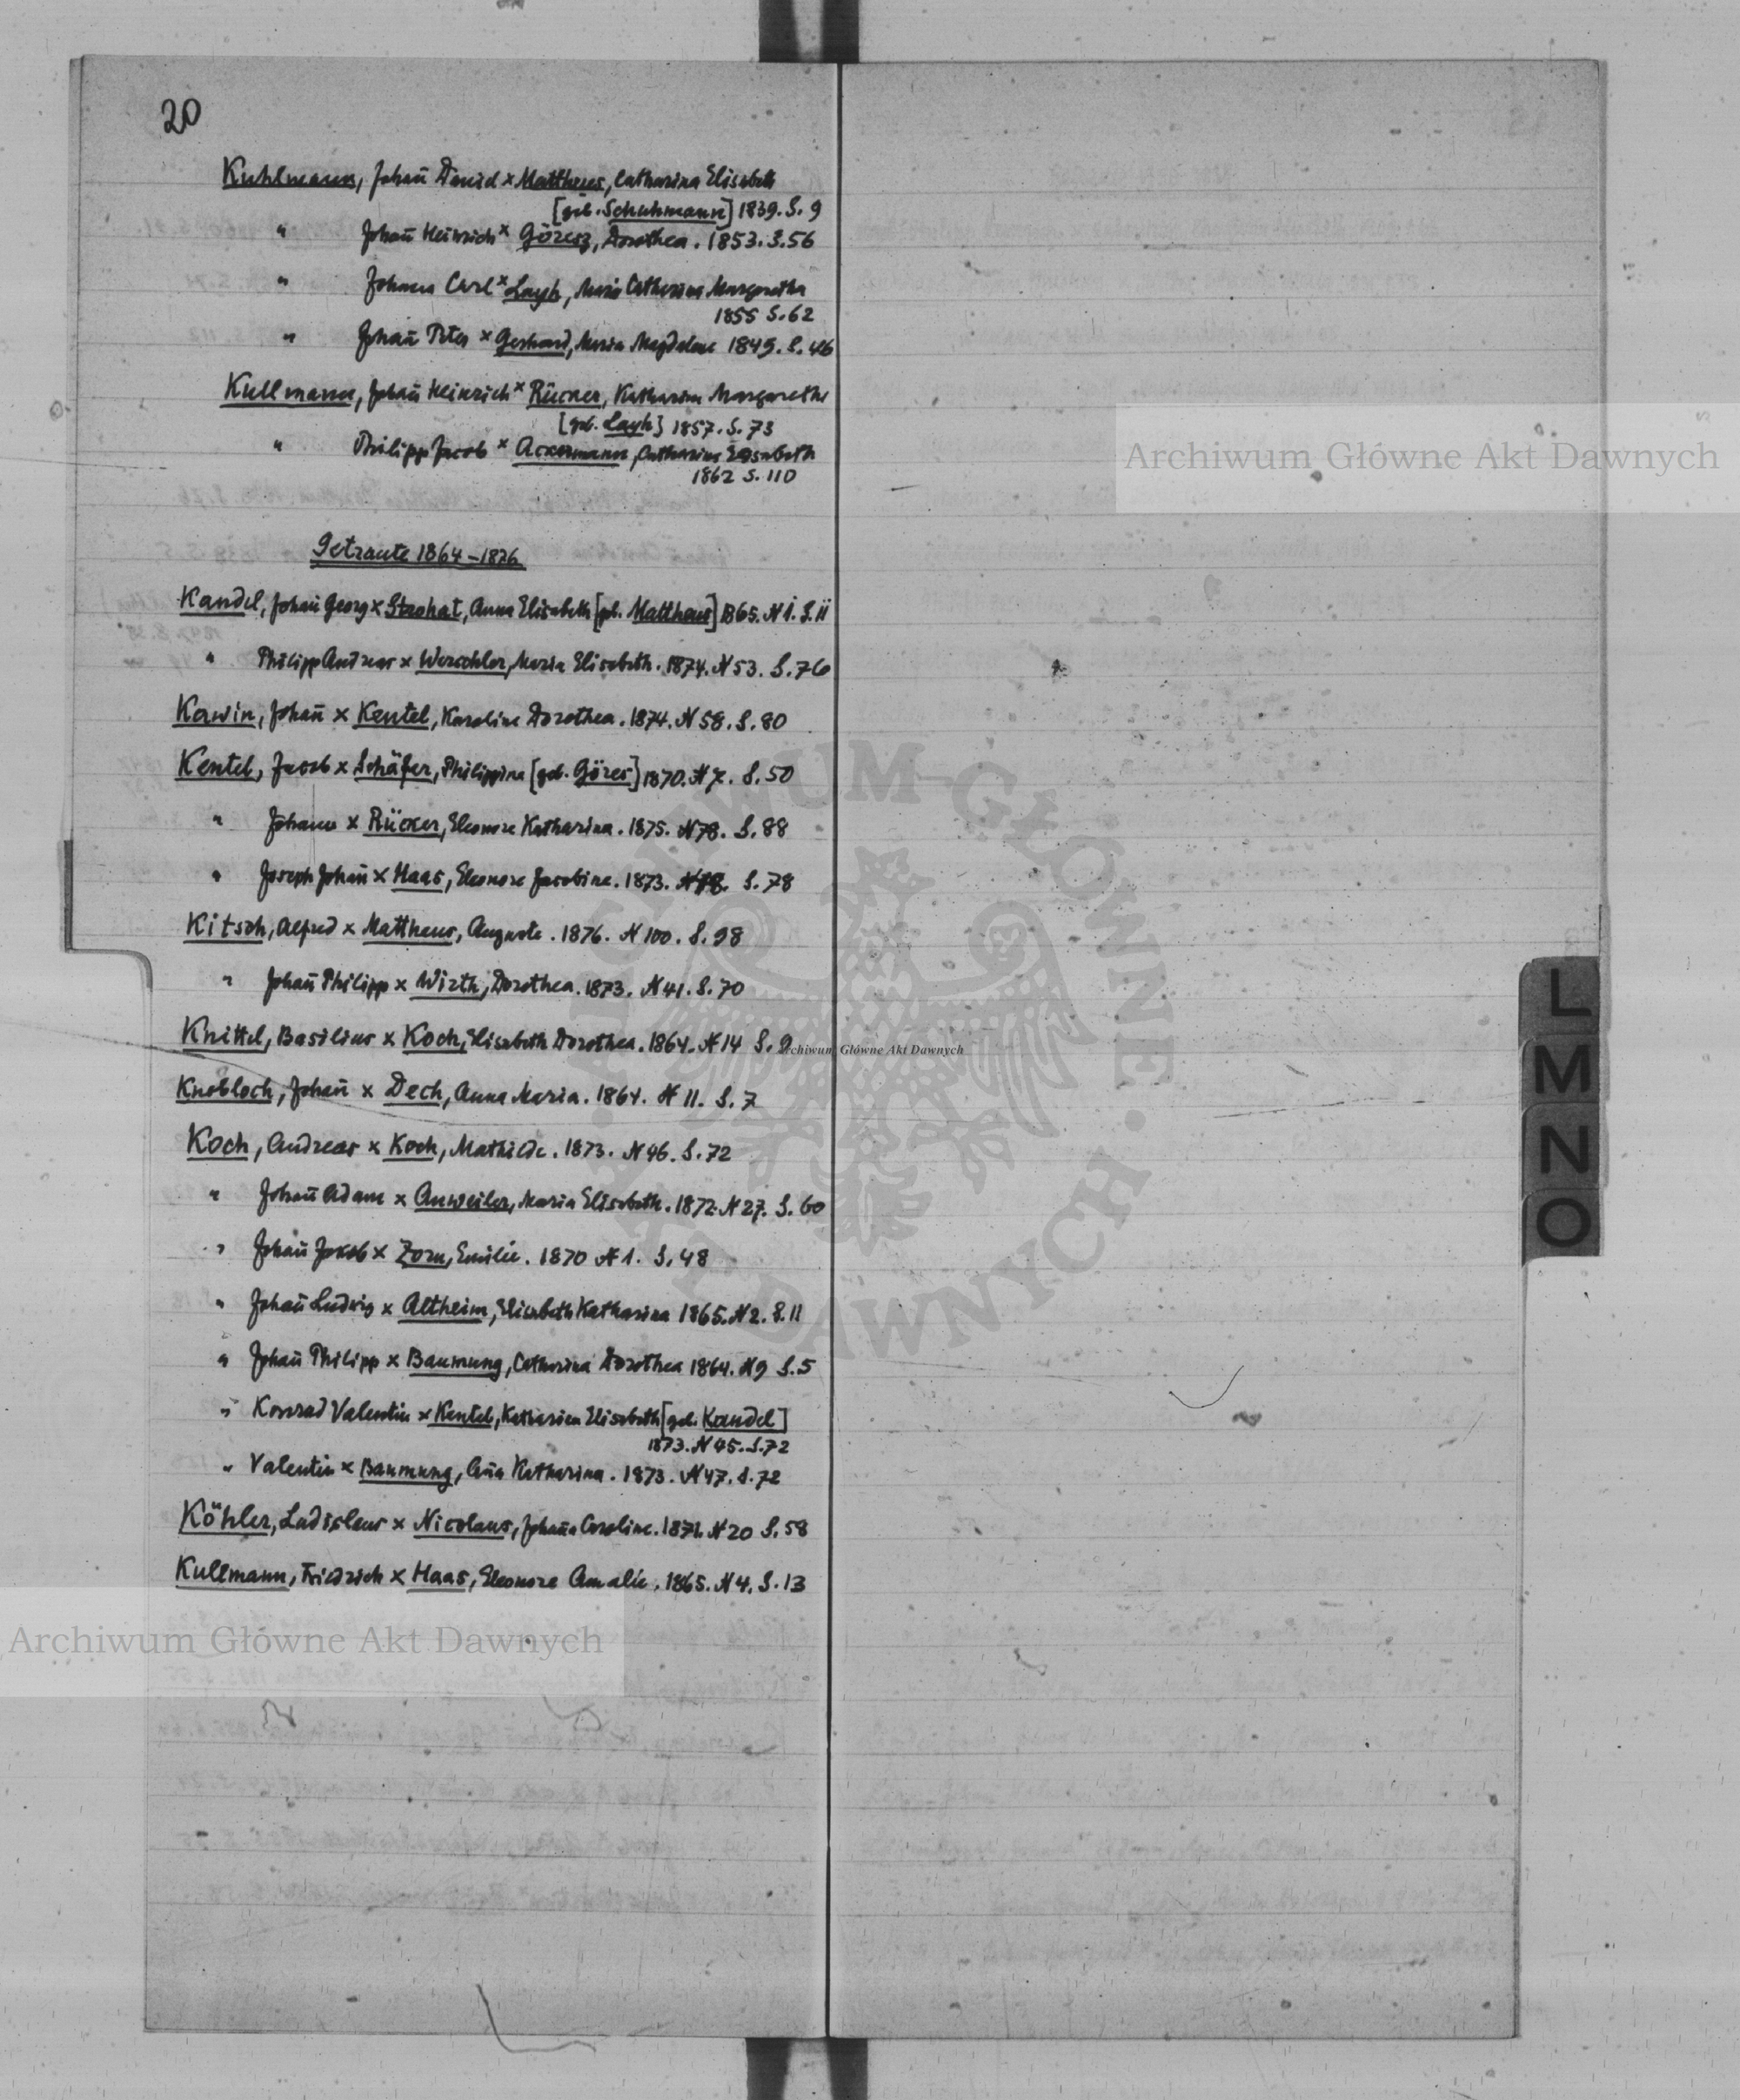 20
Kuhlmann, Johañ David x Mattheus, Catharina Elisabeth
[geb. Schuhmann] 1839. S. 9
" Johañ Heinrich x Görez, Dorothea. 1853. S. 56
" Johann Carl x Layh, Maria Catharina Margaretha
1855 S. 62
" Johañ Peter x Gerhard, Maria Magdalene 1849. S. 46
Kullmann, Johañ Heinrich x Rücker, Katharina Margarethe
[geb. Layh] 1857. S. 73
" Philipp Jacob x Ackermann, Catharina Elisabeth
1862 S. 110
Getraute 1864-1876
Kandel, Johañ Georg x, Anna Elisabeth [geb. Mattheus] 1865. N 1. S. 11
" Philipp Andreas x Werschler, Maria Elisabeth. 1874. N 53. S. 76
Kerwin, Johañ x Kentel, Karoline Dorothea. 1874. N 58. S. 80
Kentel, Jacob x Schäfer, Philippina [geb. Göres] 1870. N 7. S. 50
" Johann x Rücker, Eleonore Katharina. 1875. N 78. S. 88
" Joseph Johañ x Haas, Eleonore Jacobine. 1873. S. 78
Kitsch, Alfred x Mattheus, Auguste. 1876. N 100. S. 98
" Johañ Philipp x Wirth, Dorothea. 1873. N 41. S. 70
Knittel, Basilius x Koch, Elisabeth Dorothea. 1864. N 14 S. 9
Knobloch, Johañ x Dech, Anna Maria. 1864. N 11. S. 7
Koch, Andreas x Koch, Mathilde. 1873. N 46. S. 72
" Johañ Adam x Anweiler, Maria Elisabeth. 1872. N 27. S. 60
" Johañ Jakob x Zorn, Emilie. 1870 N 1. S. 48
" Johañ Ludwig x Altheim, Elisabeth Katharina 1865. N 2. S. 11
" Johañ Philipp x Baumung, Catharina Dorothea 1864. N 9 S. 5
" Konrad Valentin x Kentel, Katharina Elisabeth [geb. Kandel]
1873. N 45. S. 72
" Valentin x Baumung, Aña Katharina. 1873. N 47. S. 72
Köhler, Ladislaus x Nicolaus, Johaña Caroline. 1871. N 20 S. 58
Kullmann, Friedrich x Haas, Eleonore Amalie. 1865. N 4. S. 13
L
M
N
O
Archiwum Główne Akt Dawnych
Archiwum Główne Akt Dawnych
Archiwum Główne Akt Dawnych
ARCHIWUM GŁÓWNE AKT DAWNYCH